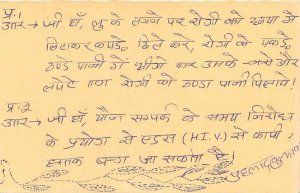 प्र.1
उत्तर → जी हाँ, लु के लगने पर रोगी को छाया में
लिटाकर कपड़े ढिले करे, रोगी को पकड़े
ठण्डे पानी में भीगे कर उसके और
लपेटे रोगी को ठण्डा पानी पिलावे।
प्र.2
उत्तर → जी हाँ, यौन सम्पर्क के समय निरोध
के प्रयोग से एडस (H.I.V.) से काफी
हदतक बचा जा सकता है